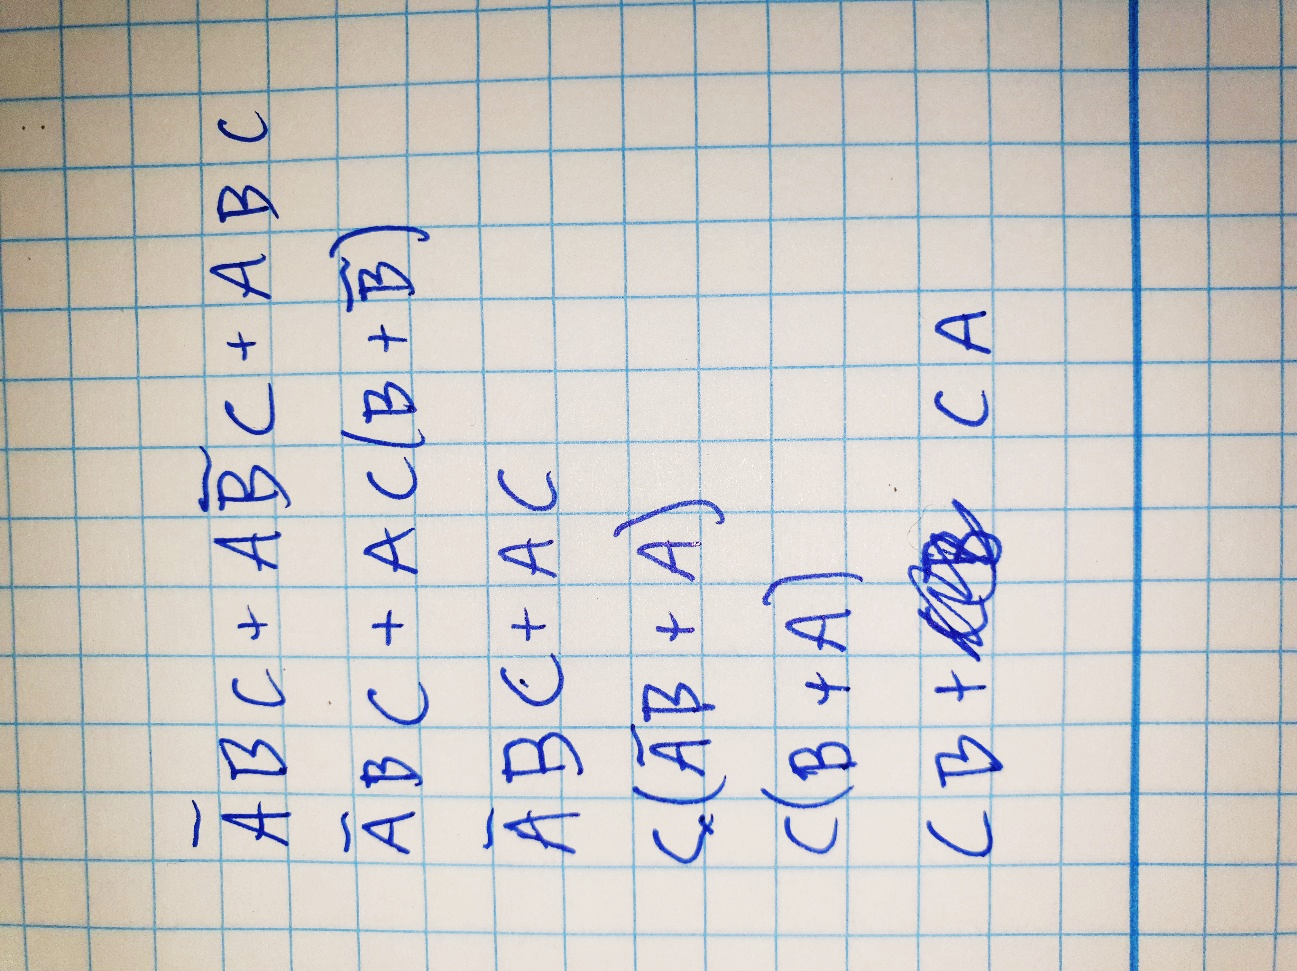 A̅BC + AB̅C + ABC
A̅BC + AC(B + B̅)
A̅BC + AC
C(A̅B + A)
C(B + A)
CB + CA